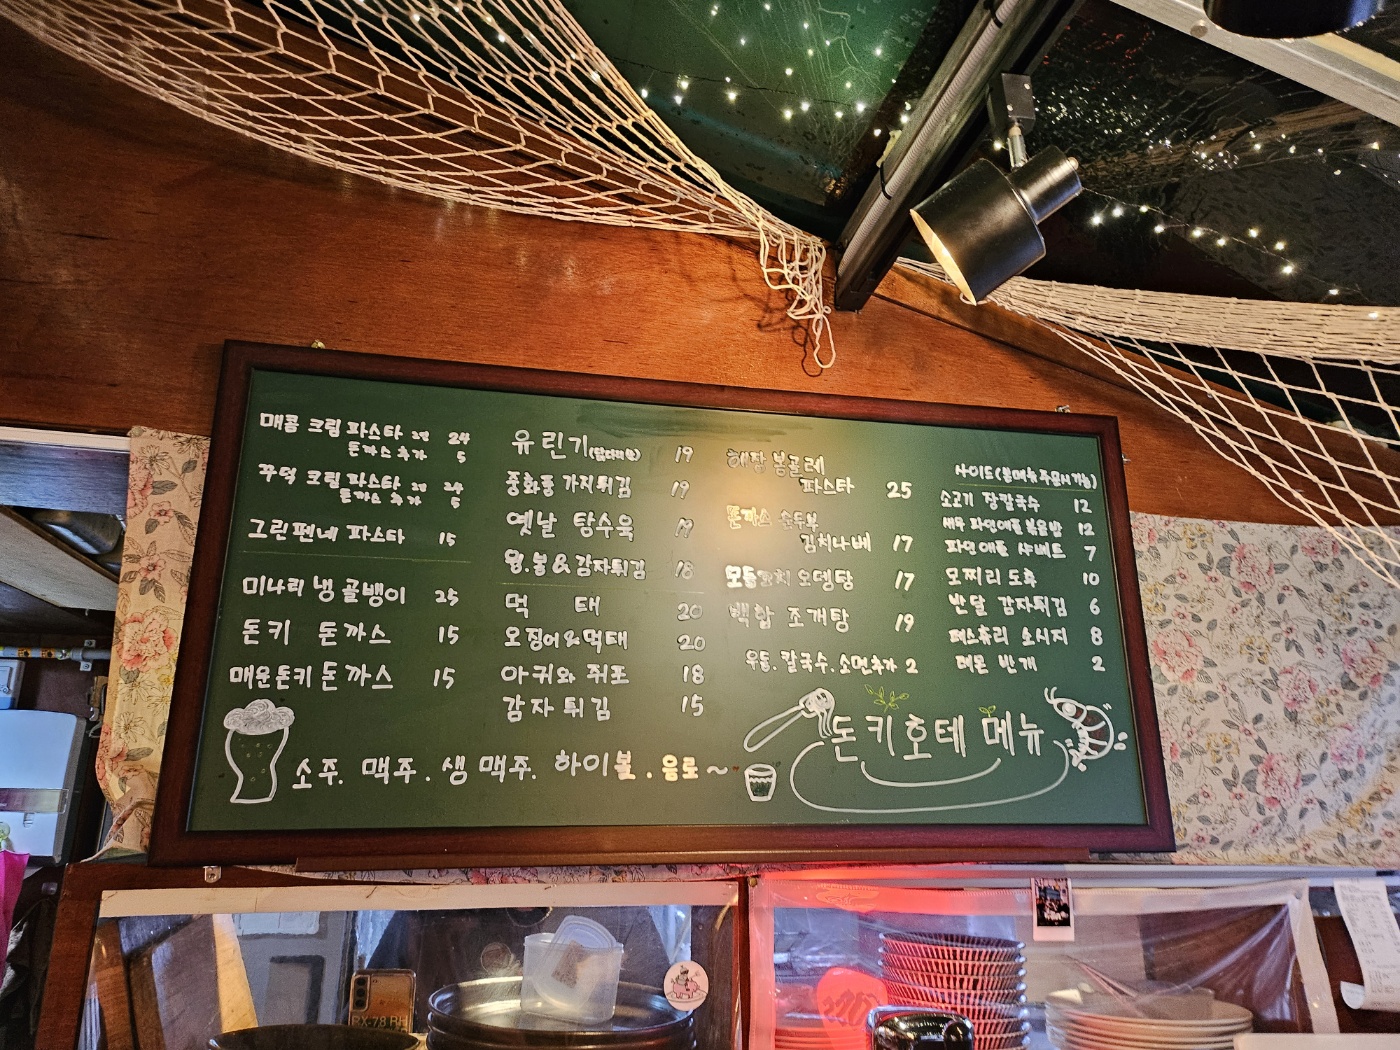 매콤 크림 파스타 24
돈까스 추가 5
꾸덕 크림 파스타 24
돈까스 추가 5
그린편네 파스타 15
미나리 냉 골뱅이 25
돈키 돈까스 15
매운돈키 돈까스 15
유린기 19
중화풍 가지튀김 19
옛날 탕수육 19
윙.봉 & 감자튀김 18
먹태 20
오징어&먹태 20
아귀와 쥐포 18
감자 튀김 15
해장 봉골레
파스타 25
돈까스 순두부
김치나베 17
모듬꼬치 오뎅탕 17
백합 조개탕 19
우동.칼국수.소면추가 2
사이드(본메뉴 주문시 가능)
소고기 장칼국수 12
새우 파인애플 볶음밥 12
파인애플 샤베트 7
모찌리 도후 10
반달 감자튀김 6
페스츄리 소시지 8
레몬 반개 2
소주. 맥주. 생맥주. 하이볼. 음료~
돈키호테 메뉴